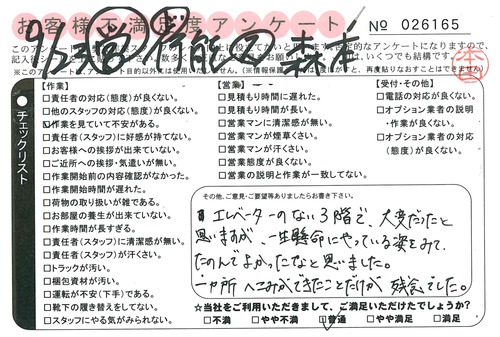 お客様不満足度アンケート
№ 026165
【作業】
□責任者の対応(態度)が良くない。
□他のスタッフの対応(態度)が良くない。
□作業を見ていて不安がある。
□責任者(スタッフ)に好感が持てない。
□お客様への挨拶が出来ていない。
□ご近所への挨拶・気遣いが無い。
□作業開始前の内容確認がなかった。
□作業開始時間が遅れた。
□荷物の取り扱いが雑である。
□お部屋の養生が出来ていない。
□作業時間が長すぎる。
□責任者(スタッフ)に清潔感が無い。
□責任者(スタッフ)が汗くさい。
□トラックが汚い。
□梱包資材が汚い。
□運転が不安(下手)である。
□靴下の履き替えをしてない。
□スタッフにやる気がみられない。
【営業】
□見積もり時間に遅れた。
□見積もり時間が長い。
□営業マンに清潔感が無い。
□営業マンが煙草くさい。
□営業マンが汗くさい。
□営業態度が良くない。
□営業の説明と作業が一致してない。
【受付・その他】
□電話の対応が良くない。
□オプション業者の説明
・作業が良くない。
□オプション業者の対応
(態度)が良くない。
チェックリスト
その他、ご意見・ご要望等ありましたらお書き下さい。
エレベーターのない3階で、大変だったと
思いますが、一生懸命にやっている姿をみて、
たのんでよかったなと思いました。
一カ所 へこみができたことだけが 残念でした。
☆当社をご利用いただきまして、ご満足いただけたでしょうか?
□不満 □やや不満 □普通 □やや満足 □満足